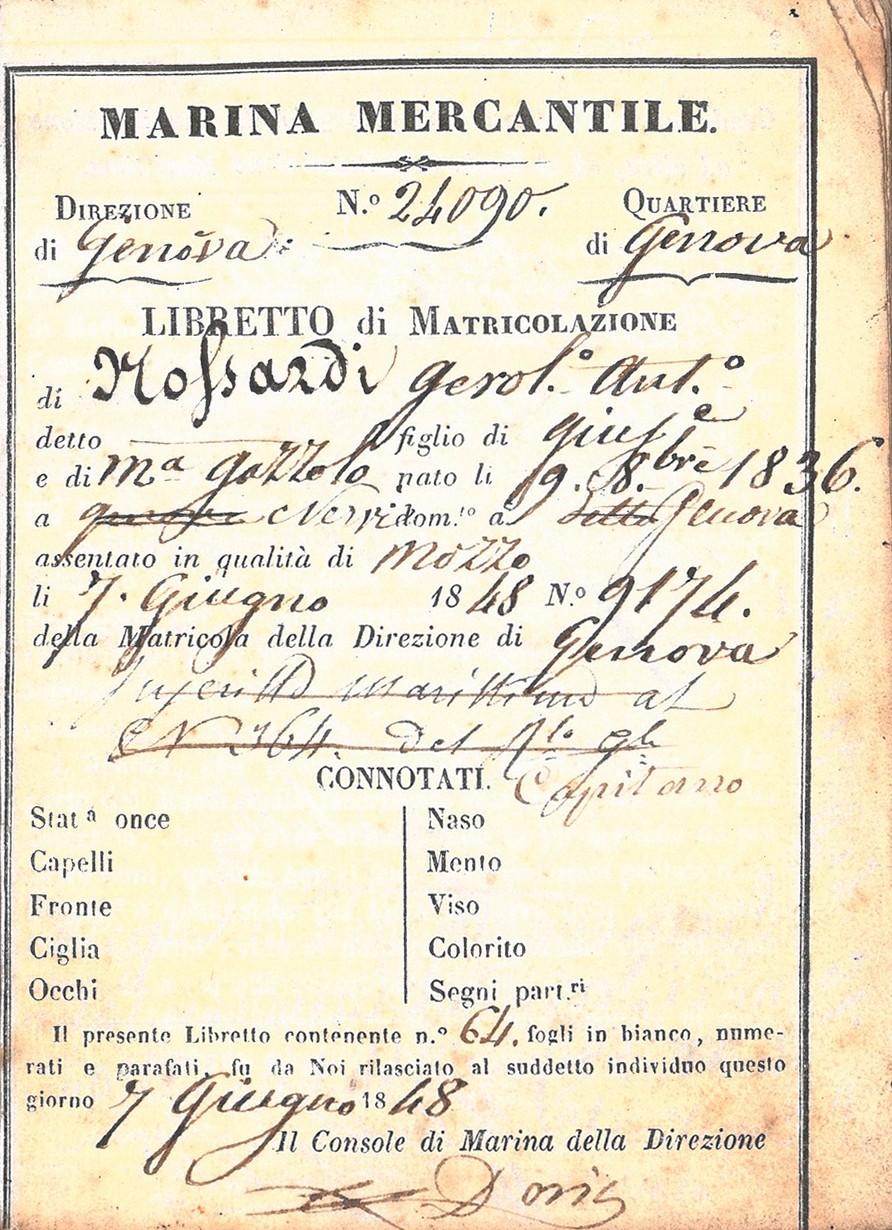 MARINA MERCANTILE.
DIREZIONE N.º 24090. QUARTIERE
di Genova di Genova
LIBRETTO di MATRICOLAZIONE
di Gerol.º Ant.º
detto figlio di Gius.e
e di Mª Gozzolo nato li 9. 8.bre 1836.
a Nervi dom.to a Genova
assentato in qualità di Mozzo
li 7. Giugno 1848 N.º 9174.
della Matricola della Direzione di Genova
Marittimo al
N 364. del
CONNOTATI. Capitano
Statª once Naso
Capelli Mento
Fronte Viso
Ciglia Colorito
Occhi Segni part.ri
Il presente Libretto contenente n.º 64. fogli in bianco, nume-
rati e parafati, fu da Noi rilasciato al suddetto individuo questo
giorno 7 Giugno 1848
Il Console di Marina della Direzione